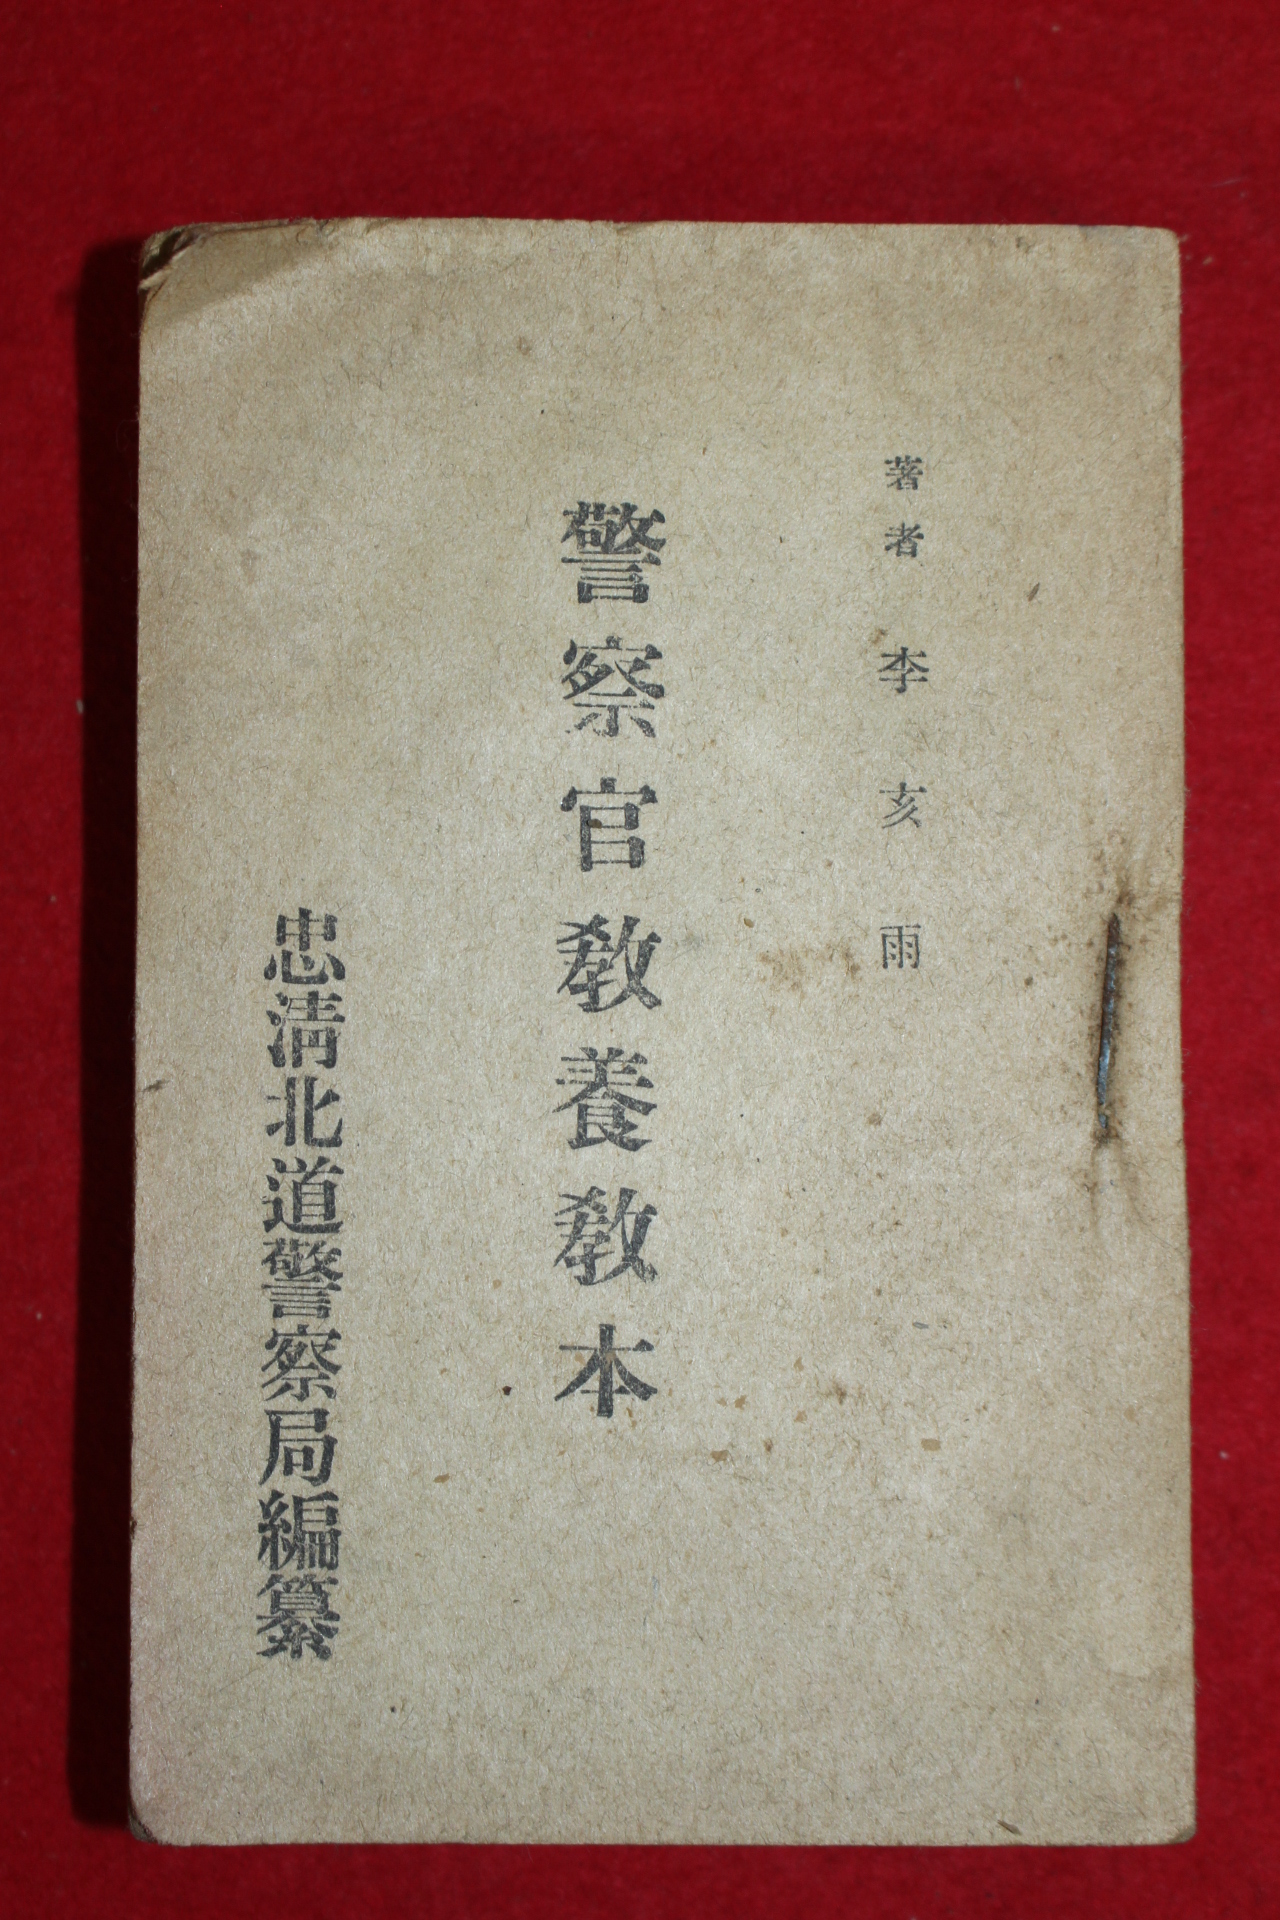 著者 李亥雨
警察官教養教本
忠淸北道警察局編纂